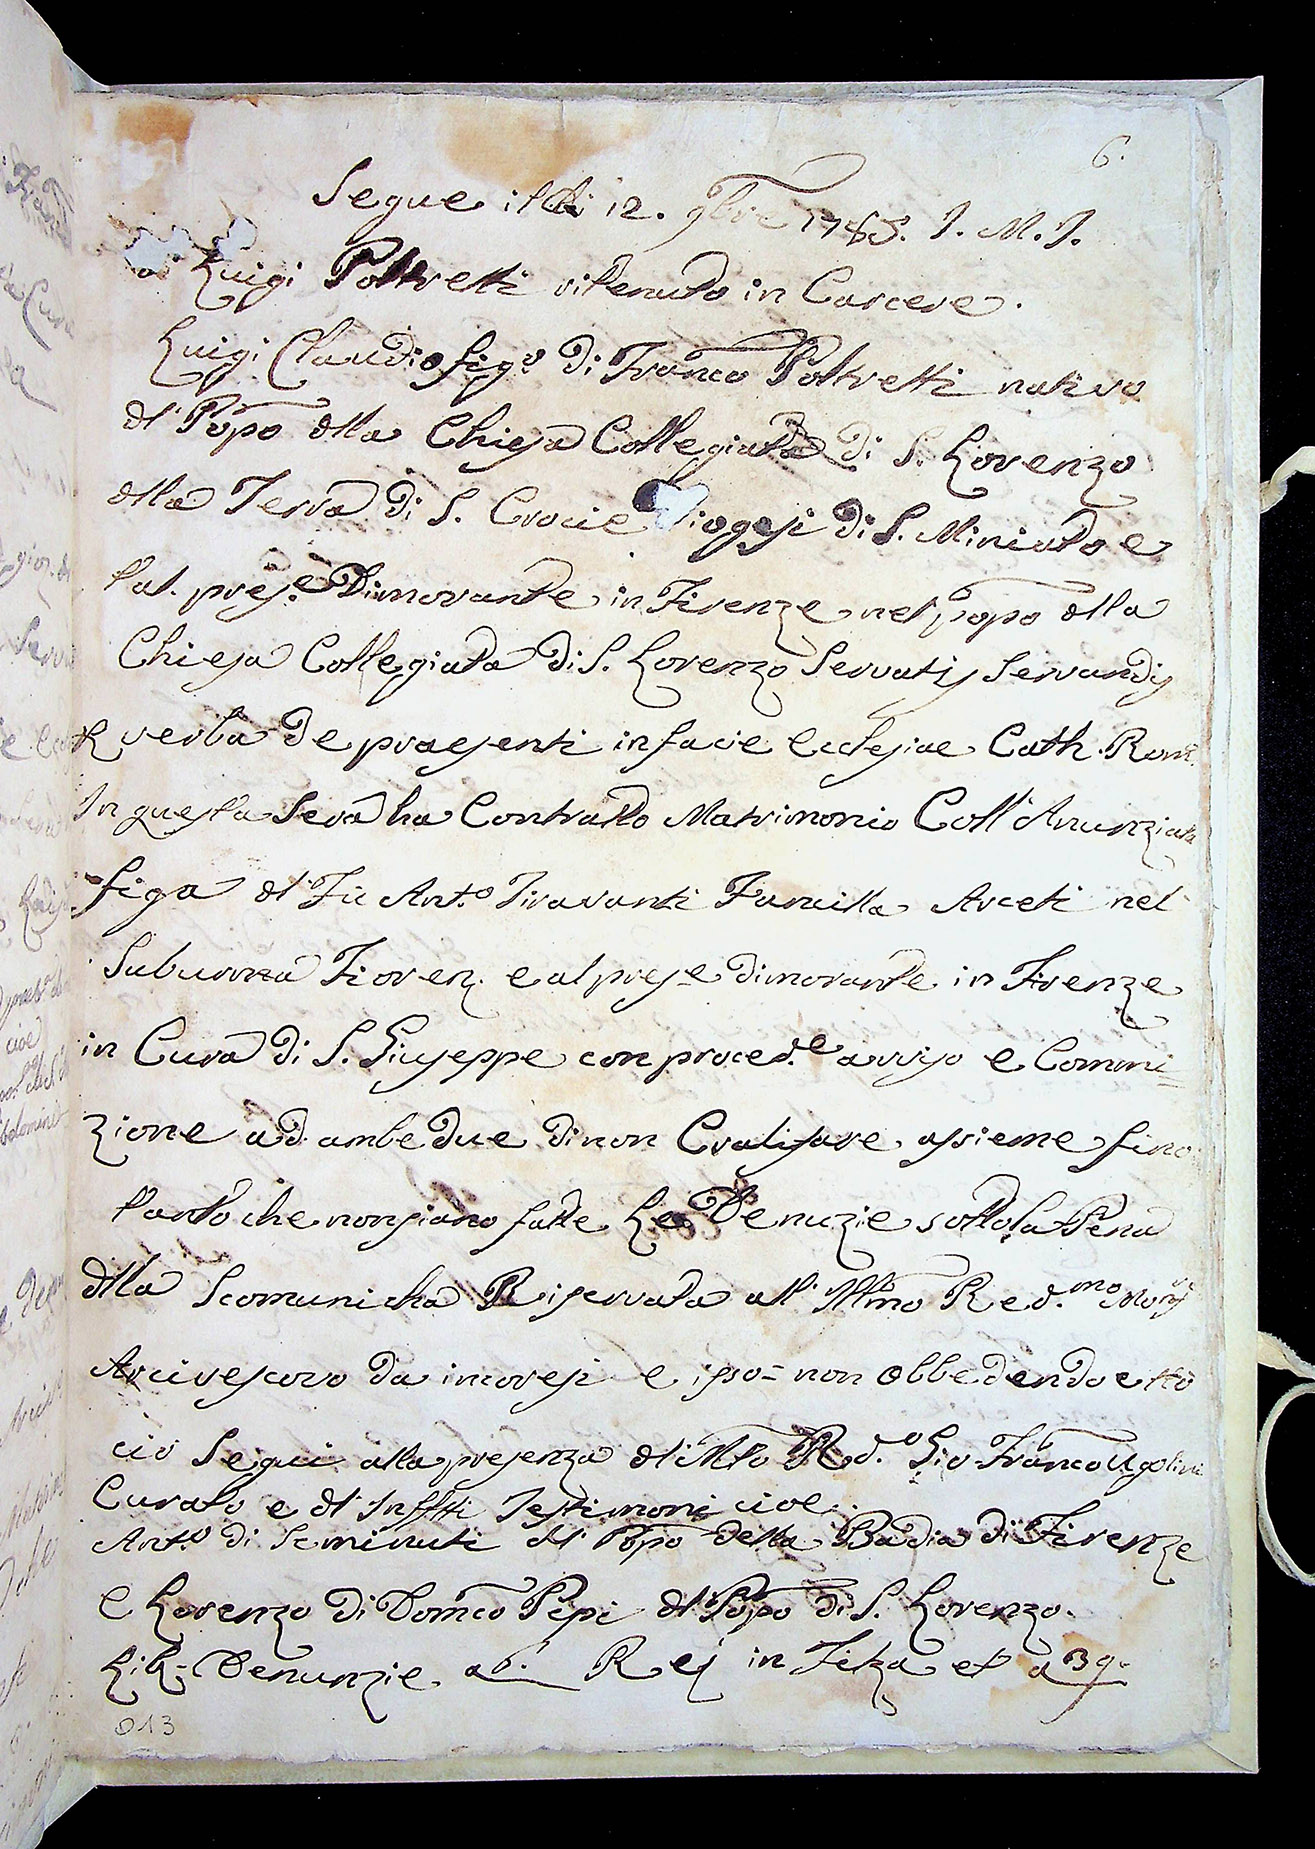 6.
Segue il di 12. 9bre 1785. J. M. J.
Luigi Poltretti ritenuto in Carcere.
Luigi Claudio figo di Franco Poltretti nativo
dl' Popo dlla Chiesa Collegiata di S. Lorenzo
dlla Terra di S. Crocie Diogesi di S. Miniato e
tal. prese Dimorante in Firenze nel popo dlla
Chiesa Collegiata di S. Lorenzo Servatis Servandis
verba de praesenti in facie Ecclesiae Cath. Rom.
In questa Sera ha Contratto Matrimonio Coll' Anunziata
figa dl' Fu Anto. Tiravanti Fancilla Arceti nel
Suburra Fioren. e al prese dimorante in Firenze
in Cura di S. Giuseppe con proced.e aviso e Commi=
zione ad ambedue di non Cralisare assieme fino
tanto che non siano fatte Le Denuzie sotto la Pena
dlla Scomunicha Riservata all' Illmo Red.mo Monsr
Arcivescovo da incoresi e ipso= non obbedendo e tto
cio Segui alla presenza dl' Mto Rd.o Gio Franco Ugolini
Curato e dl' Inffttti Testimoni cioe
Anto. di Seminuti dl' Popo della Badia di Firenze
e Lorenzo di Domco Pepi dl' Popo di S. Lorenzo.
Lib. Denunzie a 6. Rej in Filza et a 39.
013